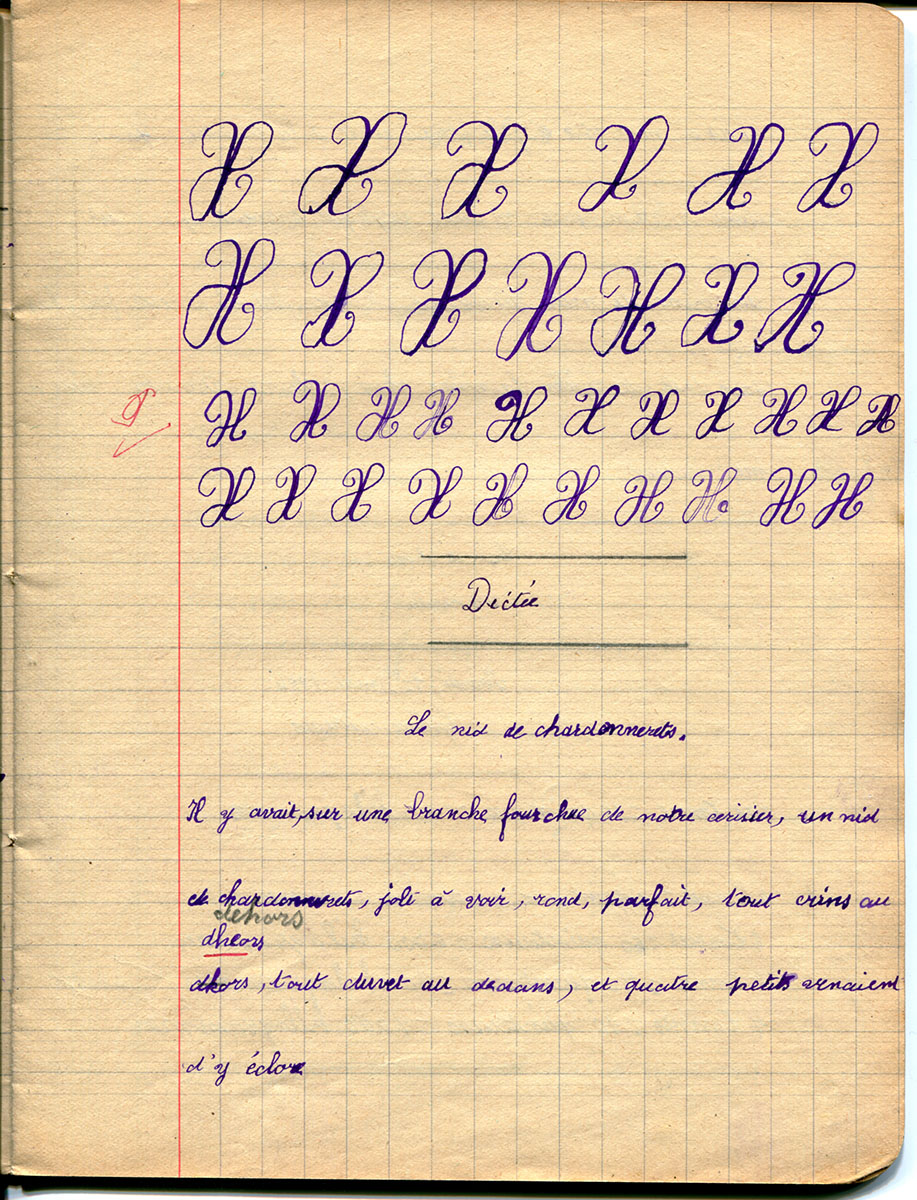 H H H H H H
H H H H H H H
H H H H H H H H H H H
H H H H H H H H H H
Dictée
Le nid de chardonnerets.
Il y avait, sur une branche fourchue de notre cerisier, un nid
de chardonnerets, joli à voir, rond, parfait, tout crins au
dehors
dheors
dhors, tout duvet au dedans, et quatre petits venaient
d'y éclore